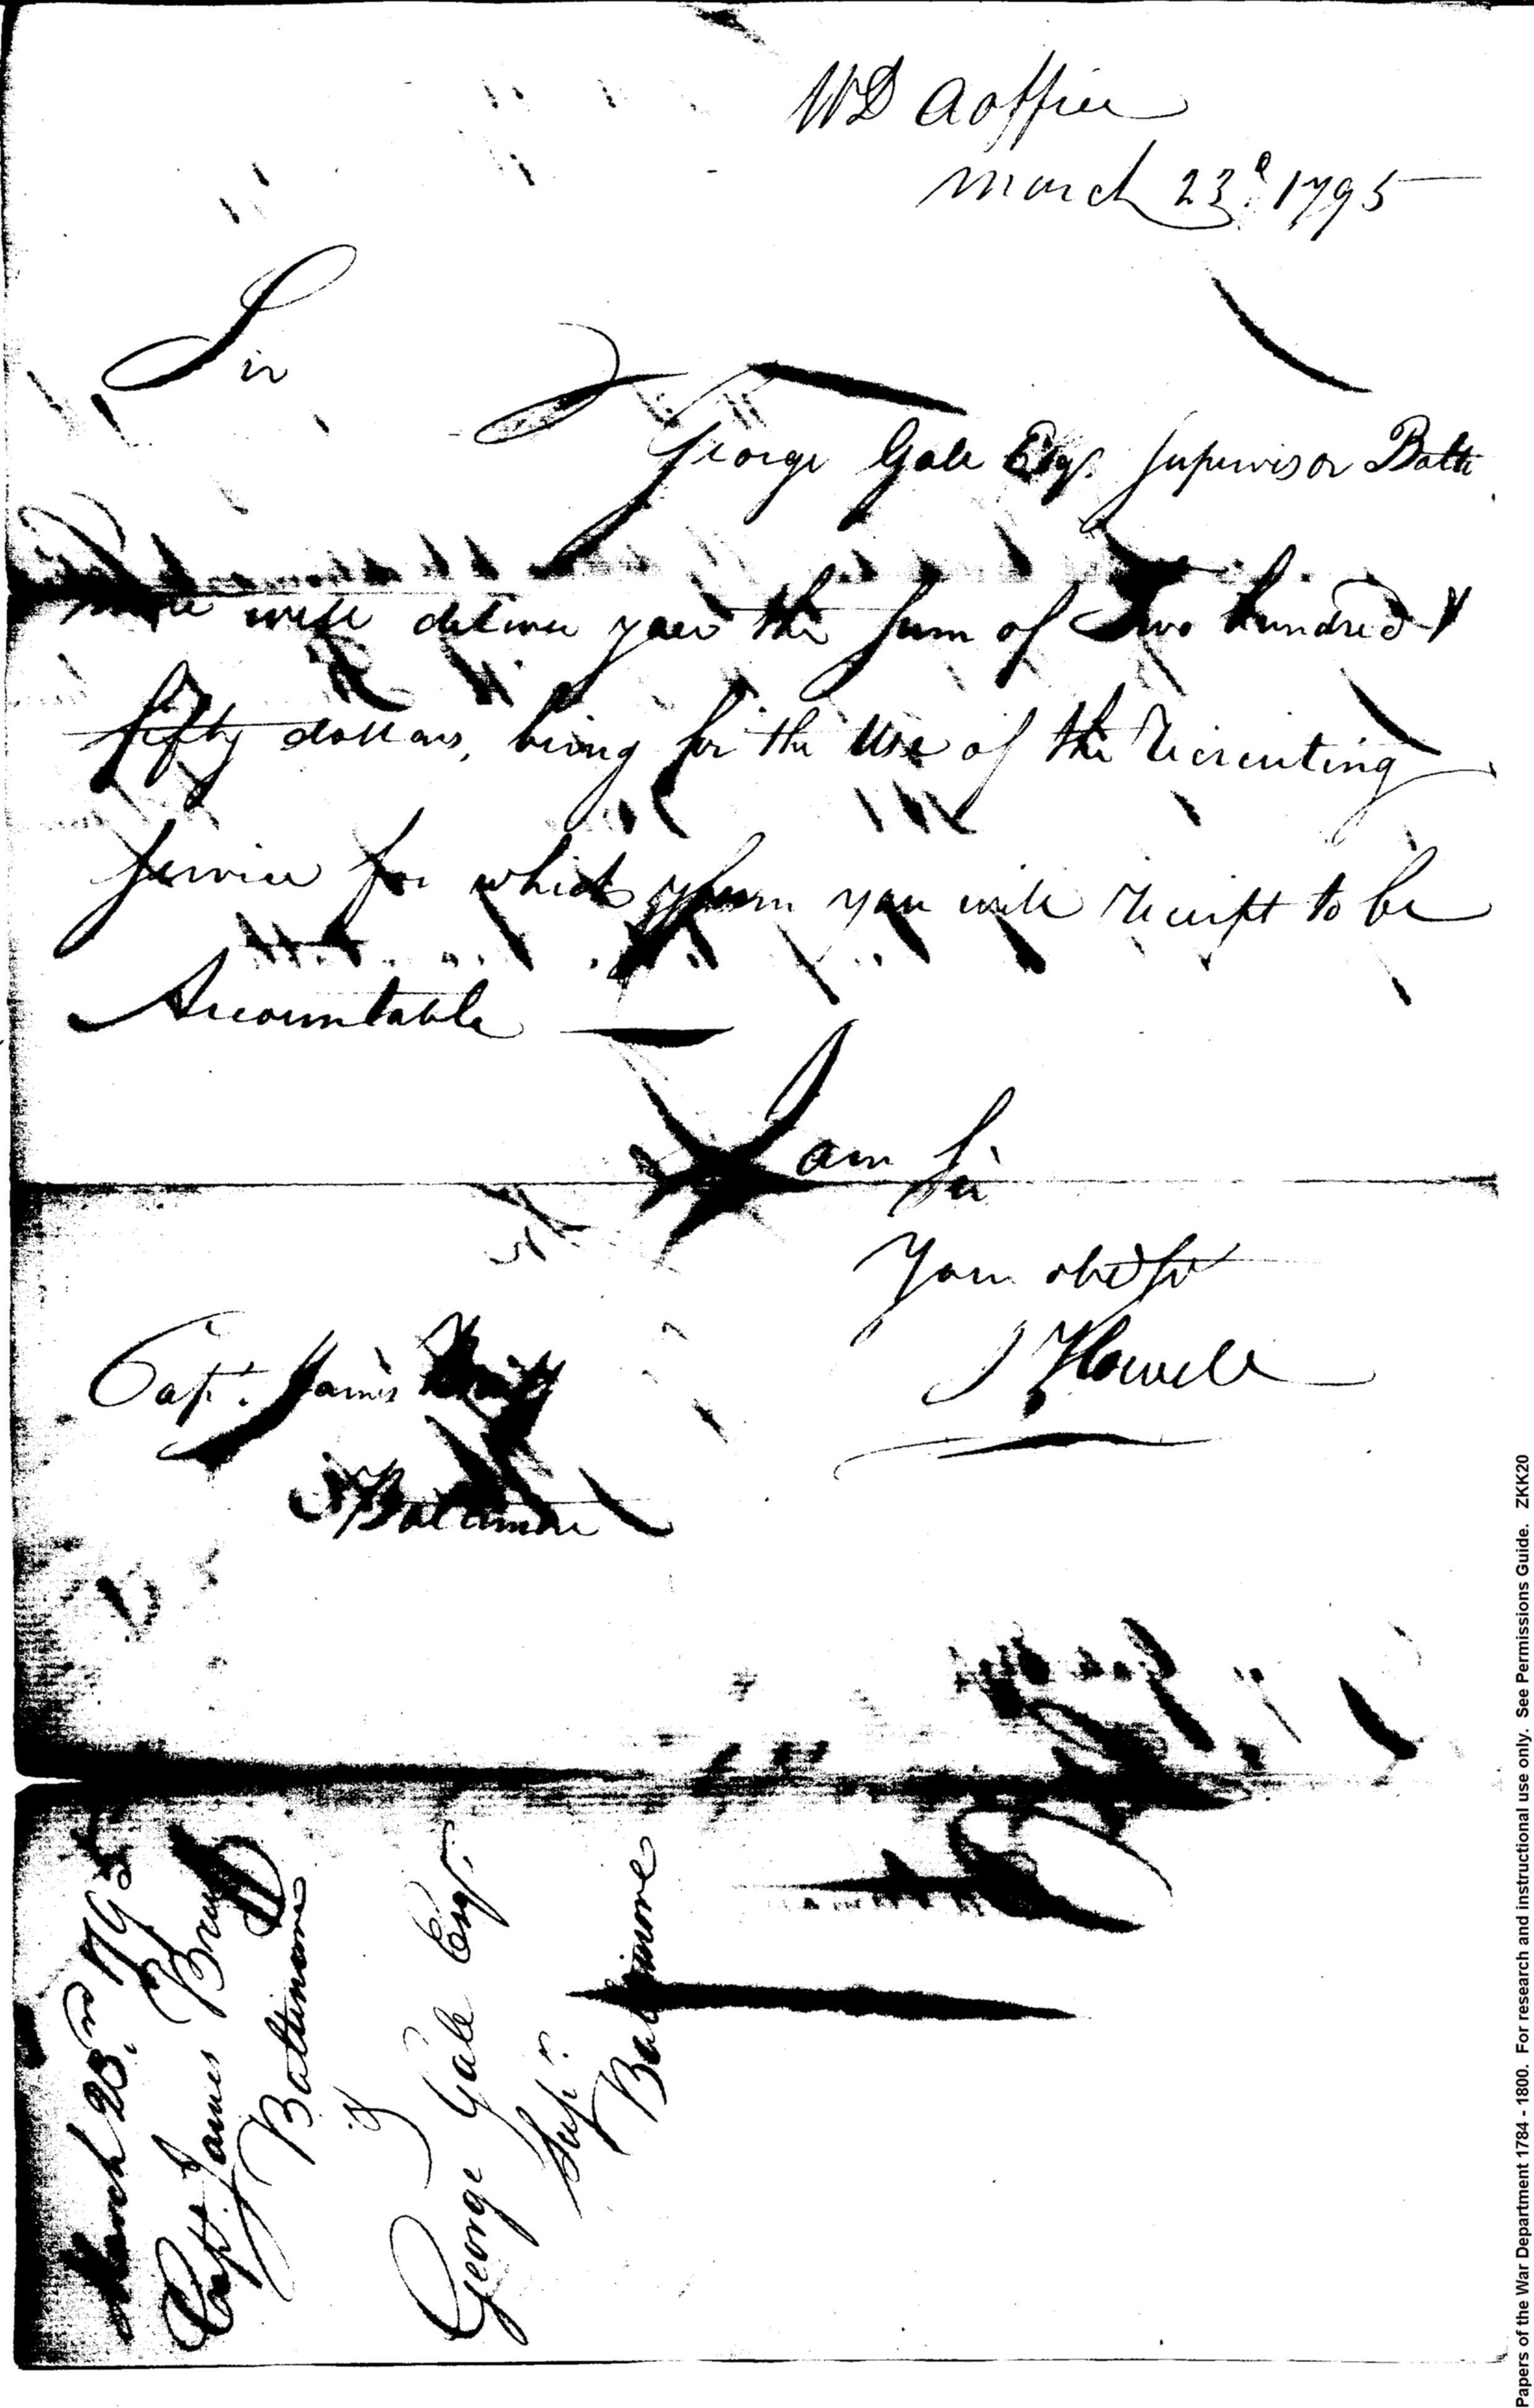 WD Aoffice
March 23d. 1795
Sir
George Gale Esqr. Supervisor Balti
more will deliver you the sum of Two hundred &
fifty dollars, being for the Use of the Recruiting
service for which sum you will receipt to be
Accountable
I am Sir
Your obed Sr
J Howell
Capt. James
Baltimore
March 23rd 1795
Capt. James Bruff
Baltimore
&
George Gale Esqr.
Supr.
Baltimore
Papers of the War Department 1784 - 1800. For research and instructional use only. See Permissions Guide. ZKK20